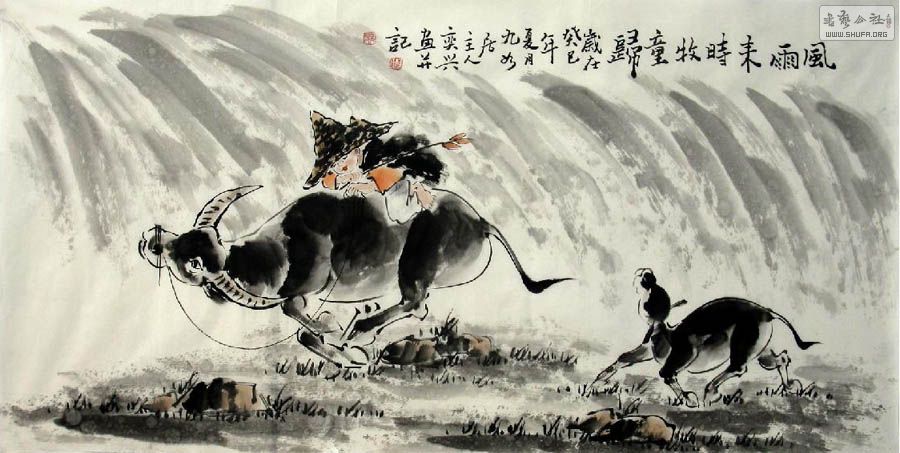 風雨来時牧童歸
歲在
癸巳
年
夏月
九如
居
主人
奕兴
画并
記
書藝公社
WWW.SHUFA.ORG